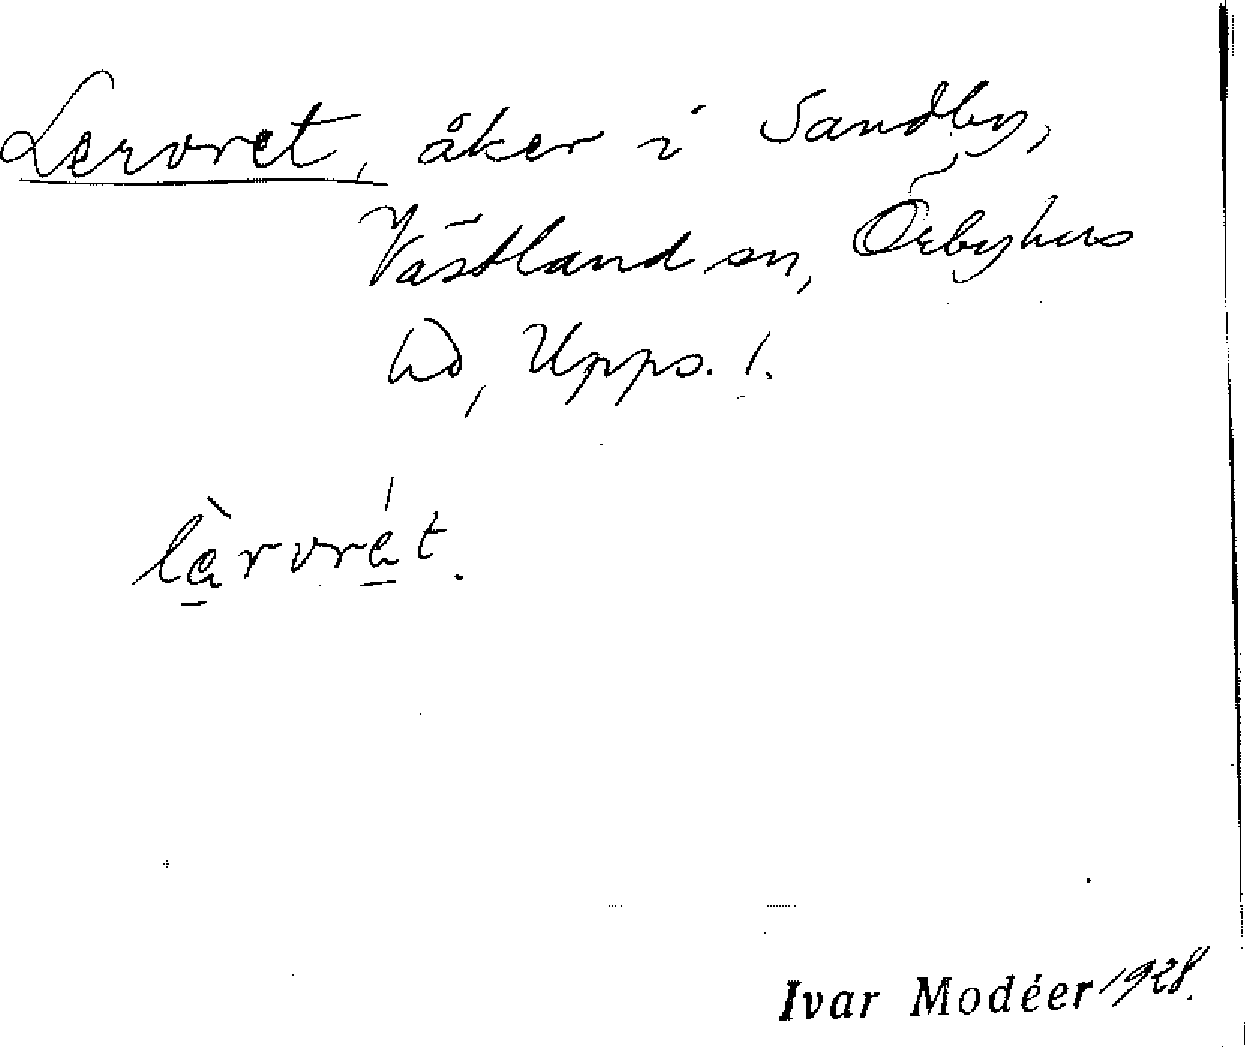 Lervret, åker i Sandby,
Västland sn, Örbyhus
hd, Upps. l.
lärvrät.
Ivar Modéer 1928.